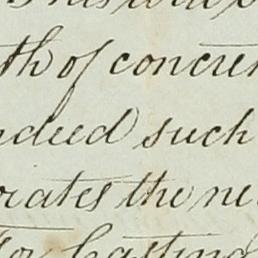 th of concre
ndeed such
rates the ne
for casting